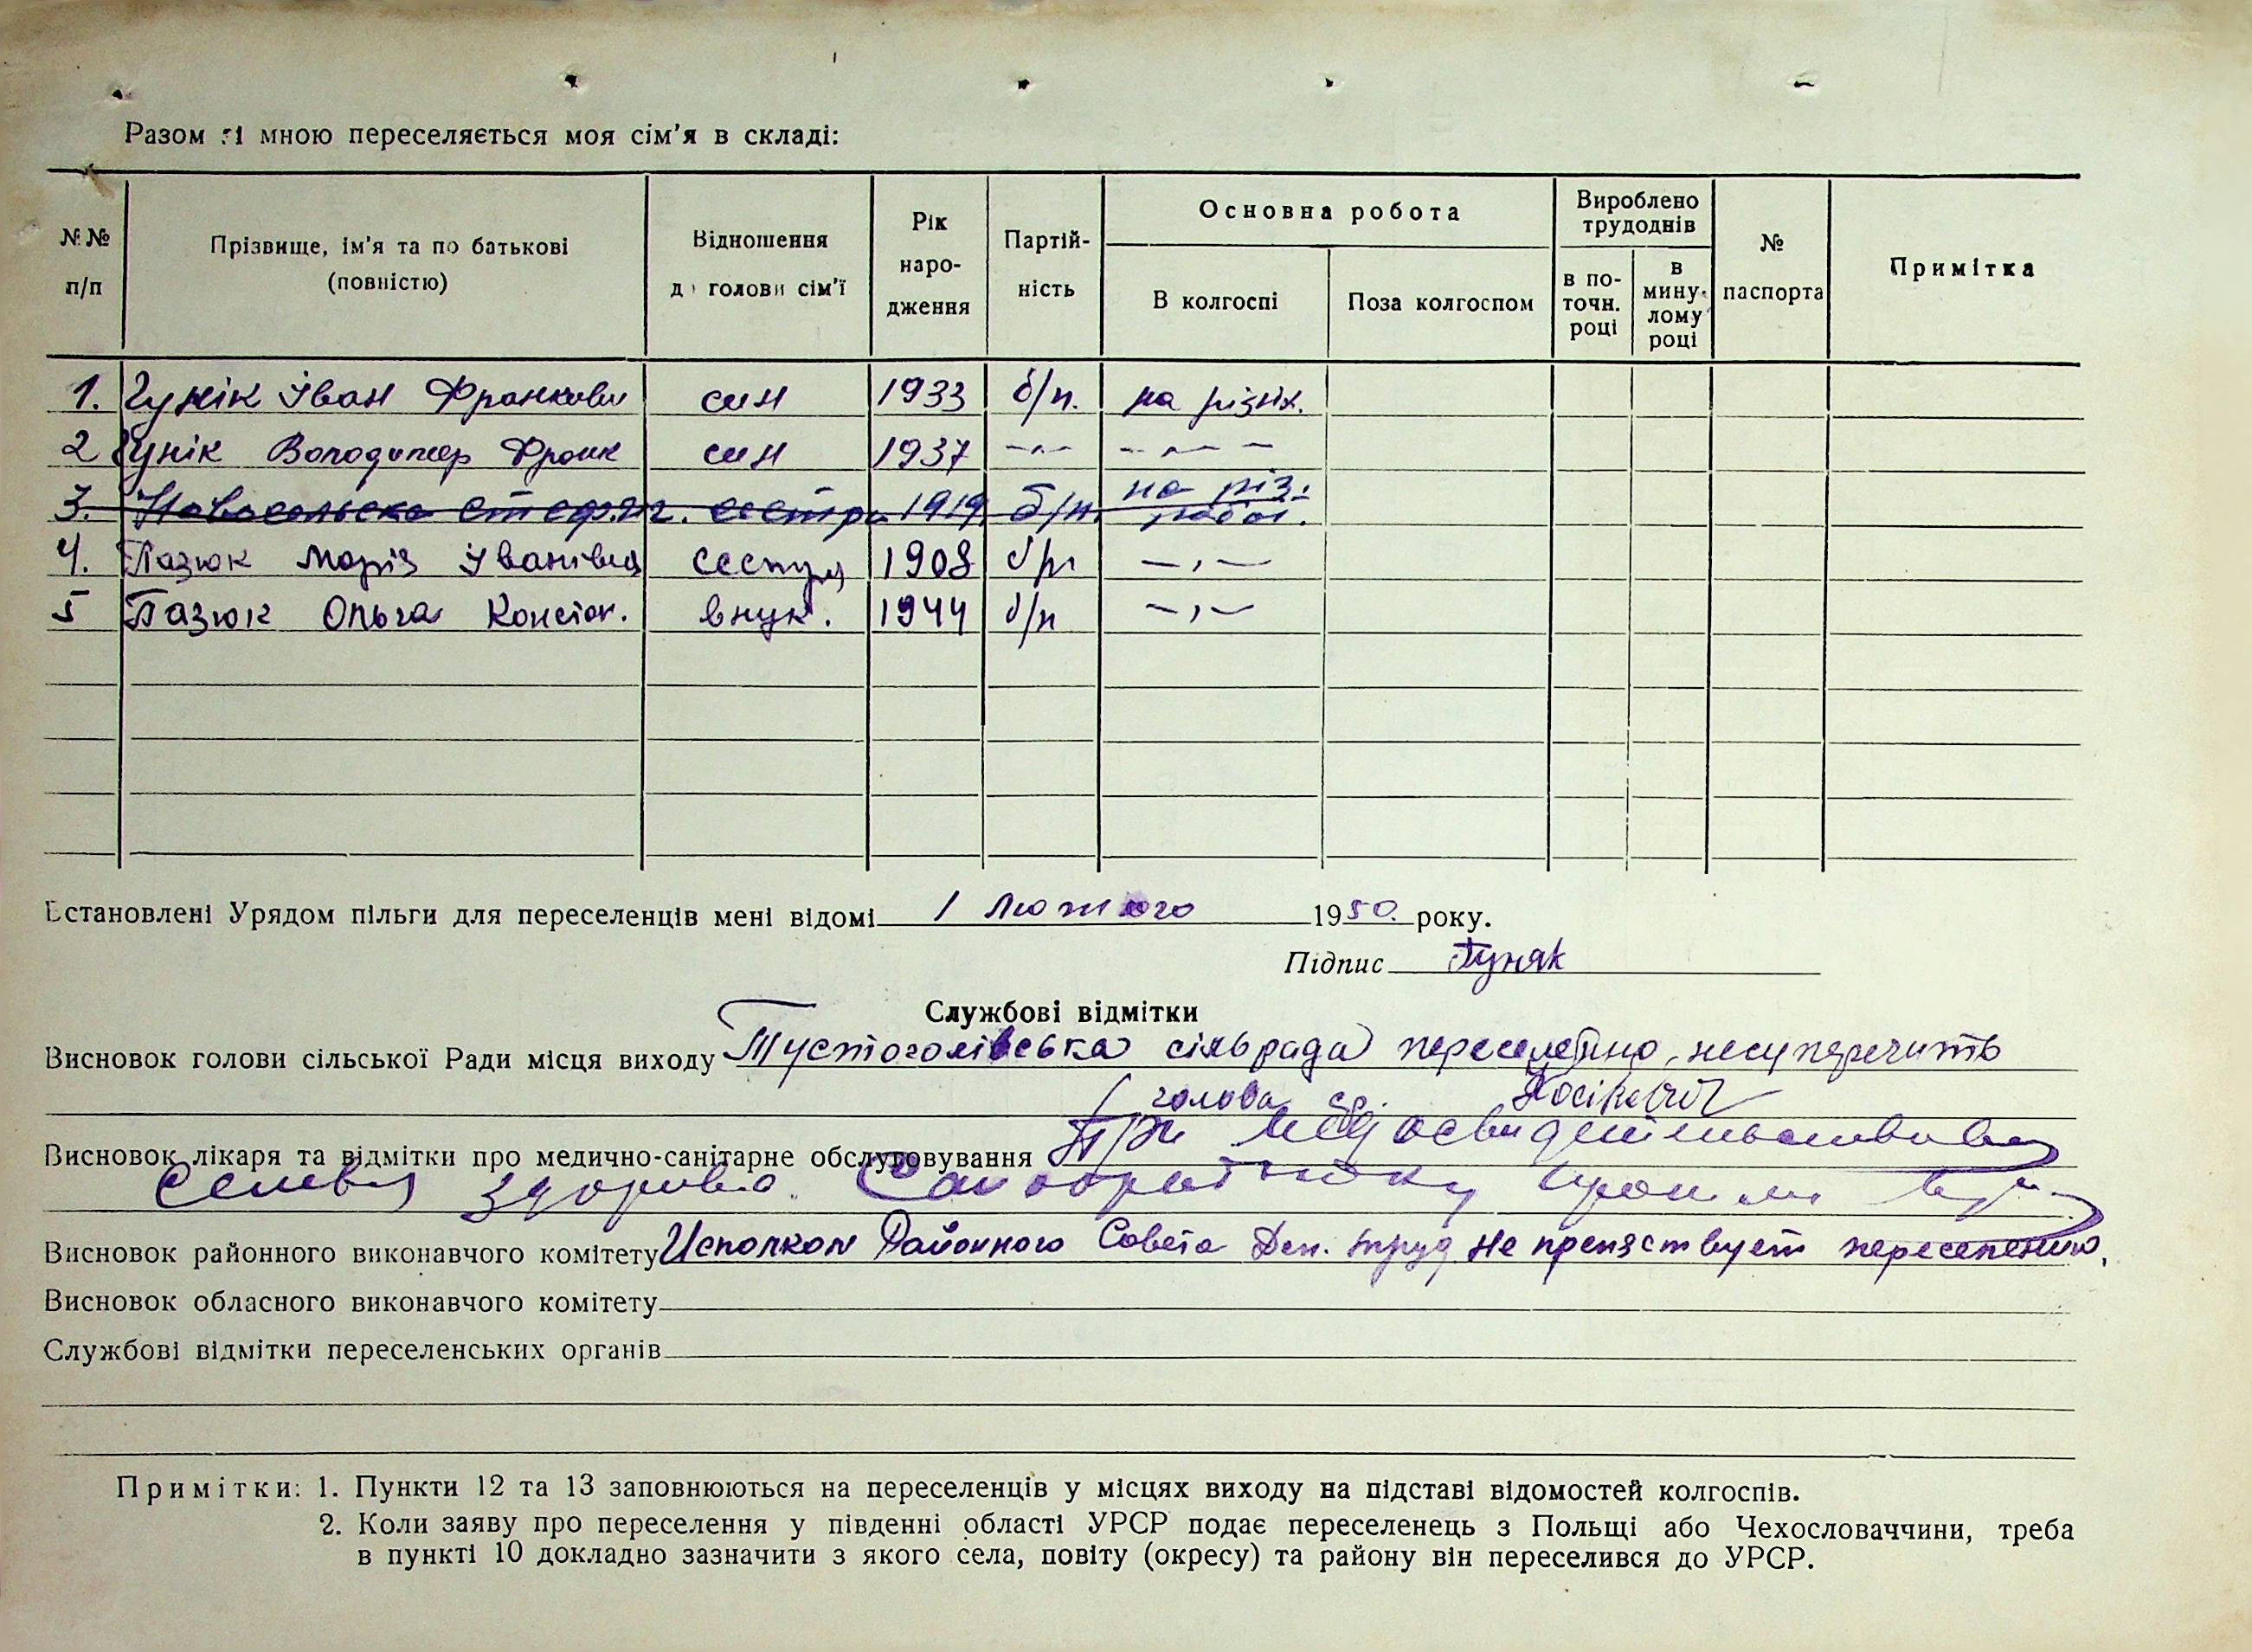 Разом зі мною переселяється моя сім'я в складі:
№№ п/п
Прізвище, ім'я та по батькові (повністю)
Відношення до голови сім'ї
Рік народження
Партійність
Основна робота
В колгоспі
Поза колгоспом
Вироблено трудоднів
в поточн. році
в минулому році
№ паспорта
Примітка
1. Гунік Іван Франкови син 1933 б/п. на різних.
2 Гунік Володимер Франк син 1937 -〃- -〃-
3. Новосельска Стефан. сестра 1919 б/п. на різ. робот.
4. Пазюк Марія Іванівна сестра 1908 б/п -〃-
5 Пазюк Ольга Констан. внук. 1944 б/п -〃-
Встановлені Урядом пільги для переселенців мені відомі 1 Лютого 1950. року.
Підпис Гуняк
Службові відмітки
Висновок голови сільської Ради місця виходу Тустоголівська сільрада переселенню несуперечить
голова ср.
Висновок лікаря та відмітки про медично-санітарне обслуговування При медосвидетельствовании
Семья здорова. Санобработку
Висновок районного виконавчого комітету Исполком Районного Совета Деп. труд не препяствует переселению.
Висновок обласного виконавчого комітету
Службові відмітки переселенських органів
Примітки: 1. Пункти 12 та 13 заповнюються на переселенців у місцях виходу на підставі відомостей колгоспів.
2. Коли заяву про переселення у південні області УРСР подає переселенець з Польщі або Чехословаччини, треба
в пункті 10 докладно зазначити з якого села, повіту (окресу) та району він переселився до УРСР.